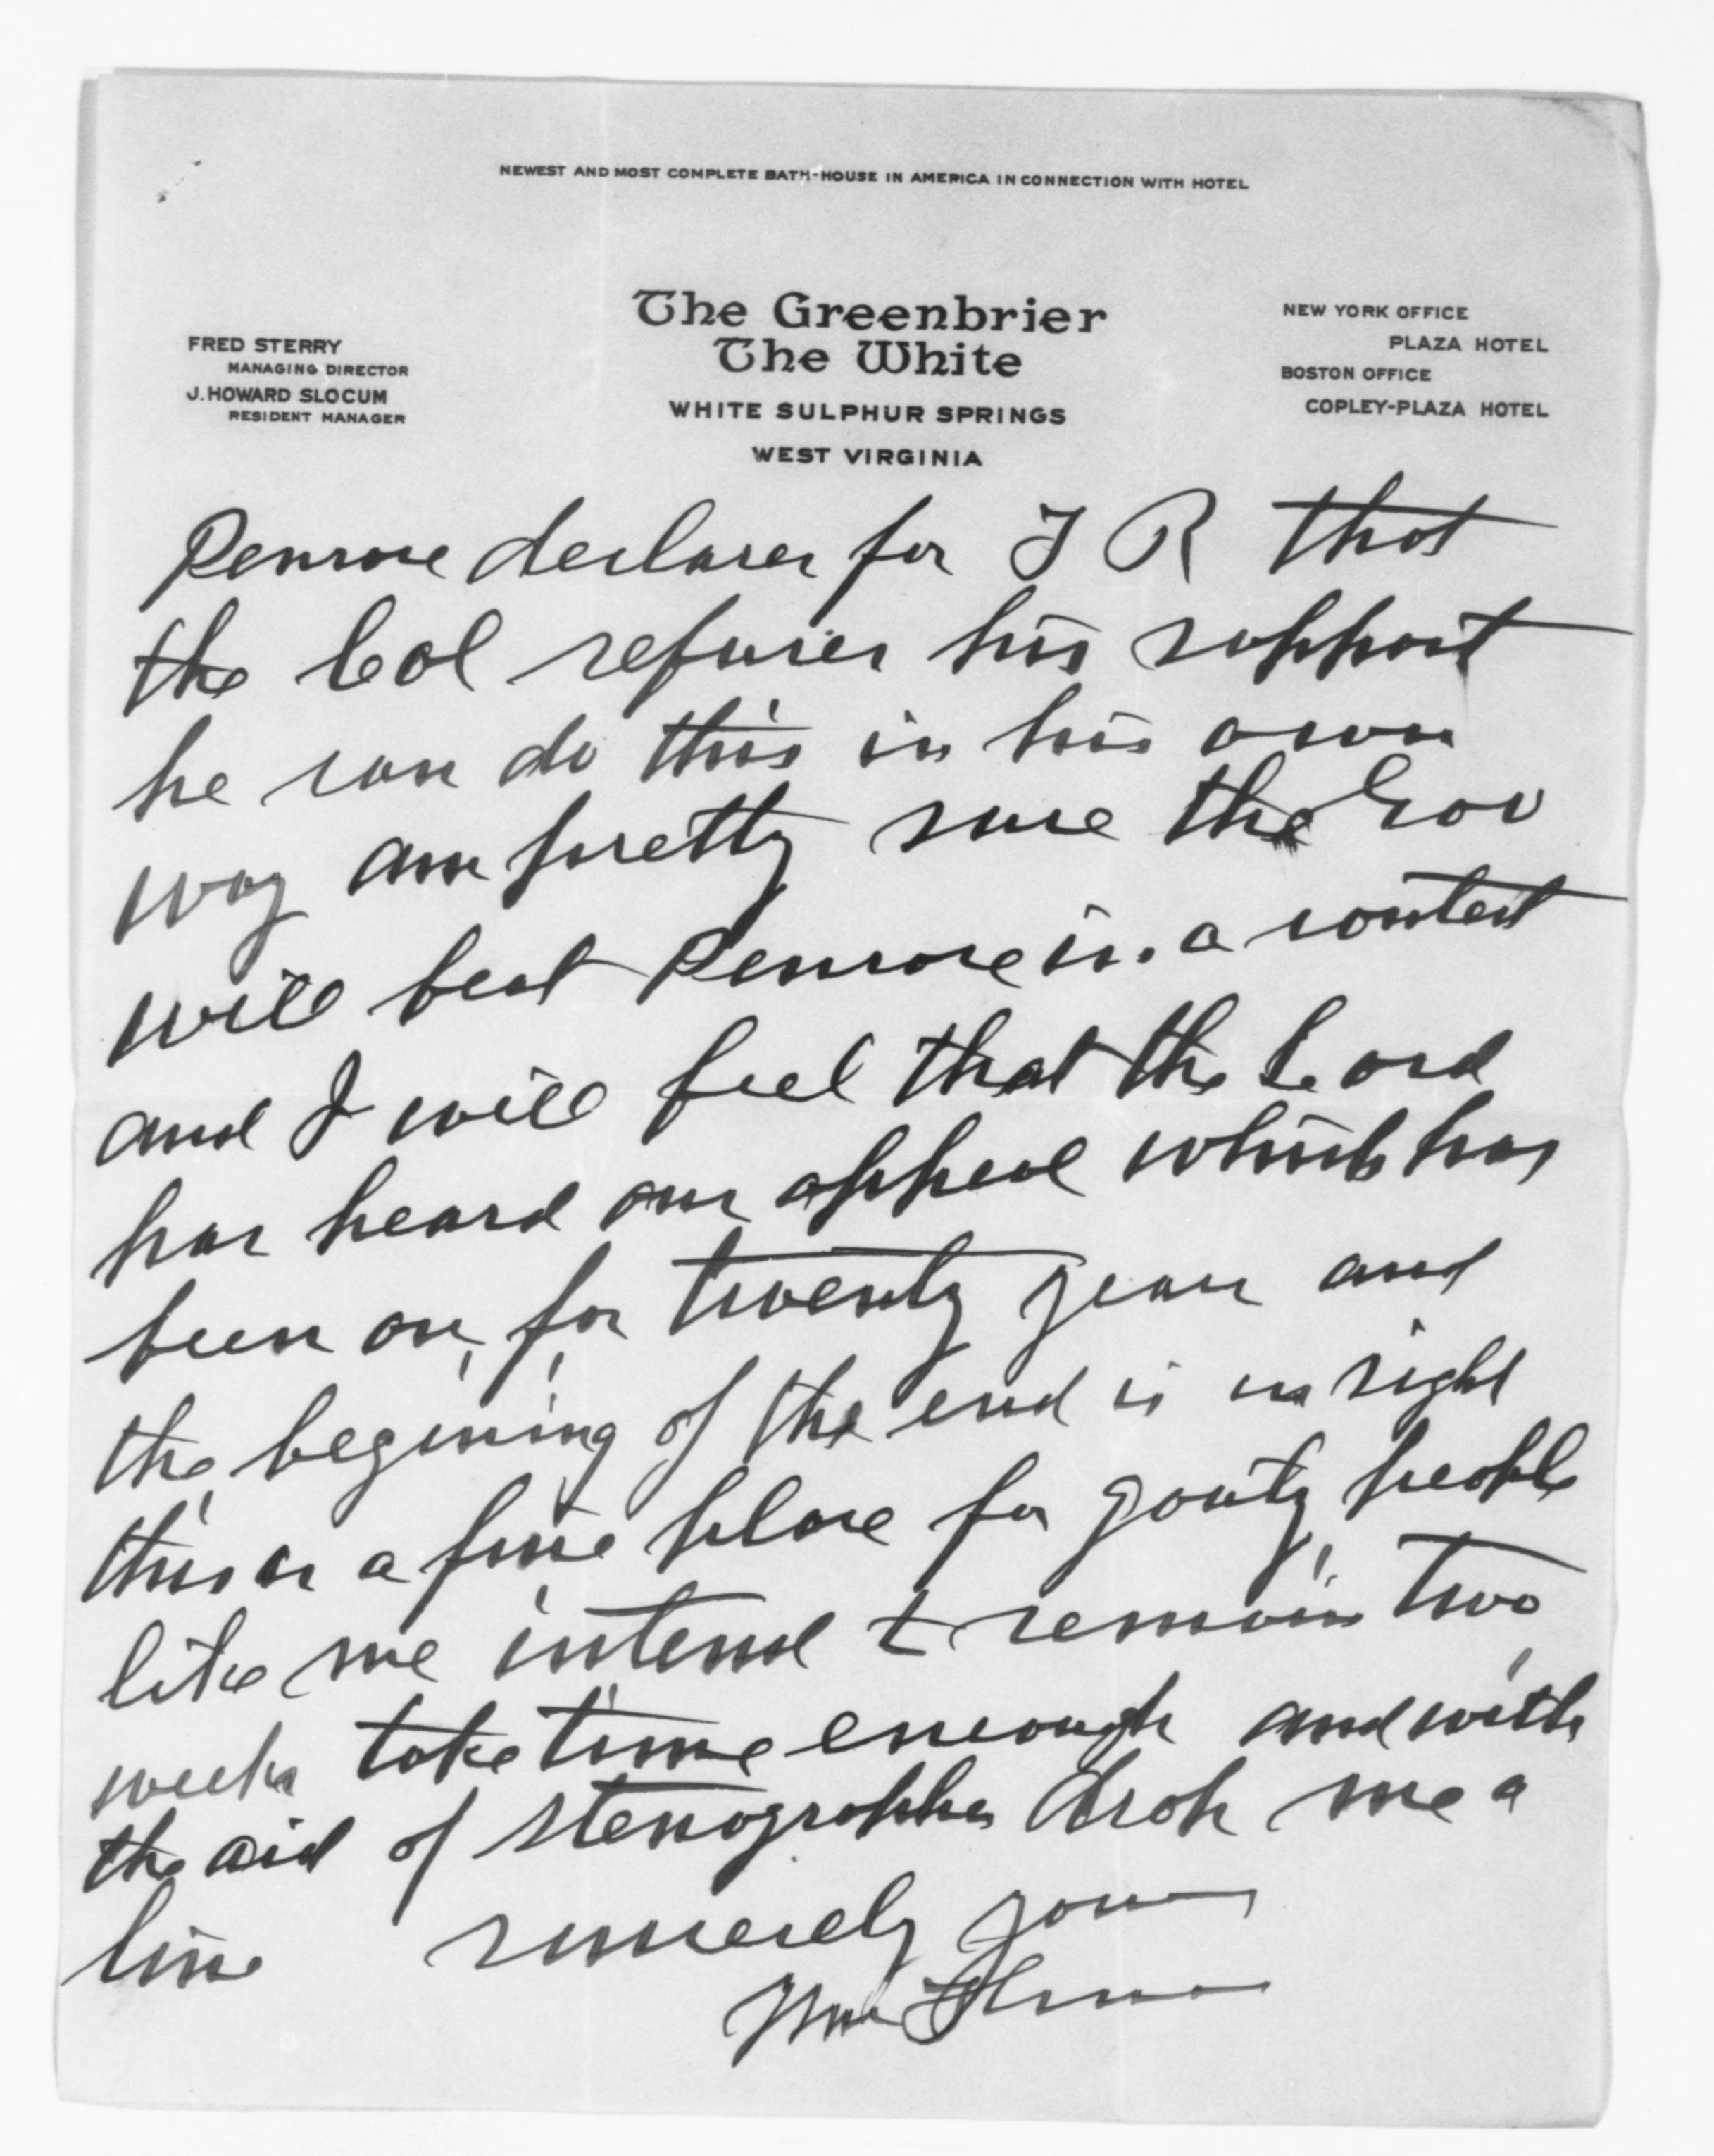 NEWEST AND MOST COMPLETE BATH-HOUSE IN AMERICA IN CONNECTION WITH HOTEL
The Greenbrier
The White
WHITE SULPHUR SPRINGS
WEST VIRGINIA
FRED STERRY
MANAGING DIRECTOR
J. HOWARD SLOCUM
RESIDENT MANAGER
NEW YORK OFFICE
PLAZA HOTEL
BOSTON OFFICE
COPLEY-PLAZA HOTEL
Penrose declares for T R that
the Col refuses his support
he can do this in his own
way am pretty sure the Gov
will beat Penrose in a contest
and I will feel that the Lord
has heard our appeal which has
been on for twenty years and
the begining of the end is in sight
this is a fine place for gouty people
like me intend t remain two
weeks take time enough and with
the aid of stenographer drop me a
line sincerely yours
Wm Flinn